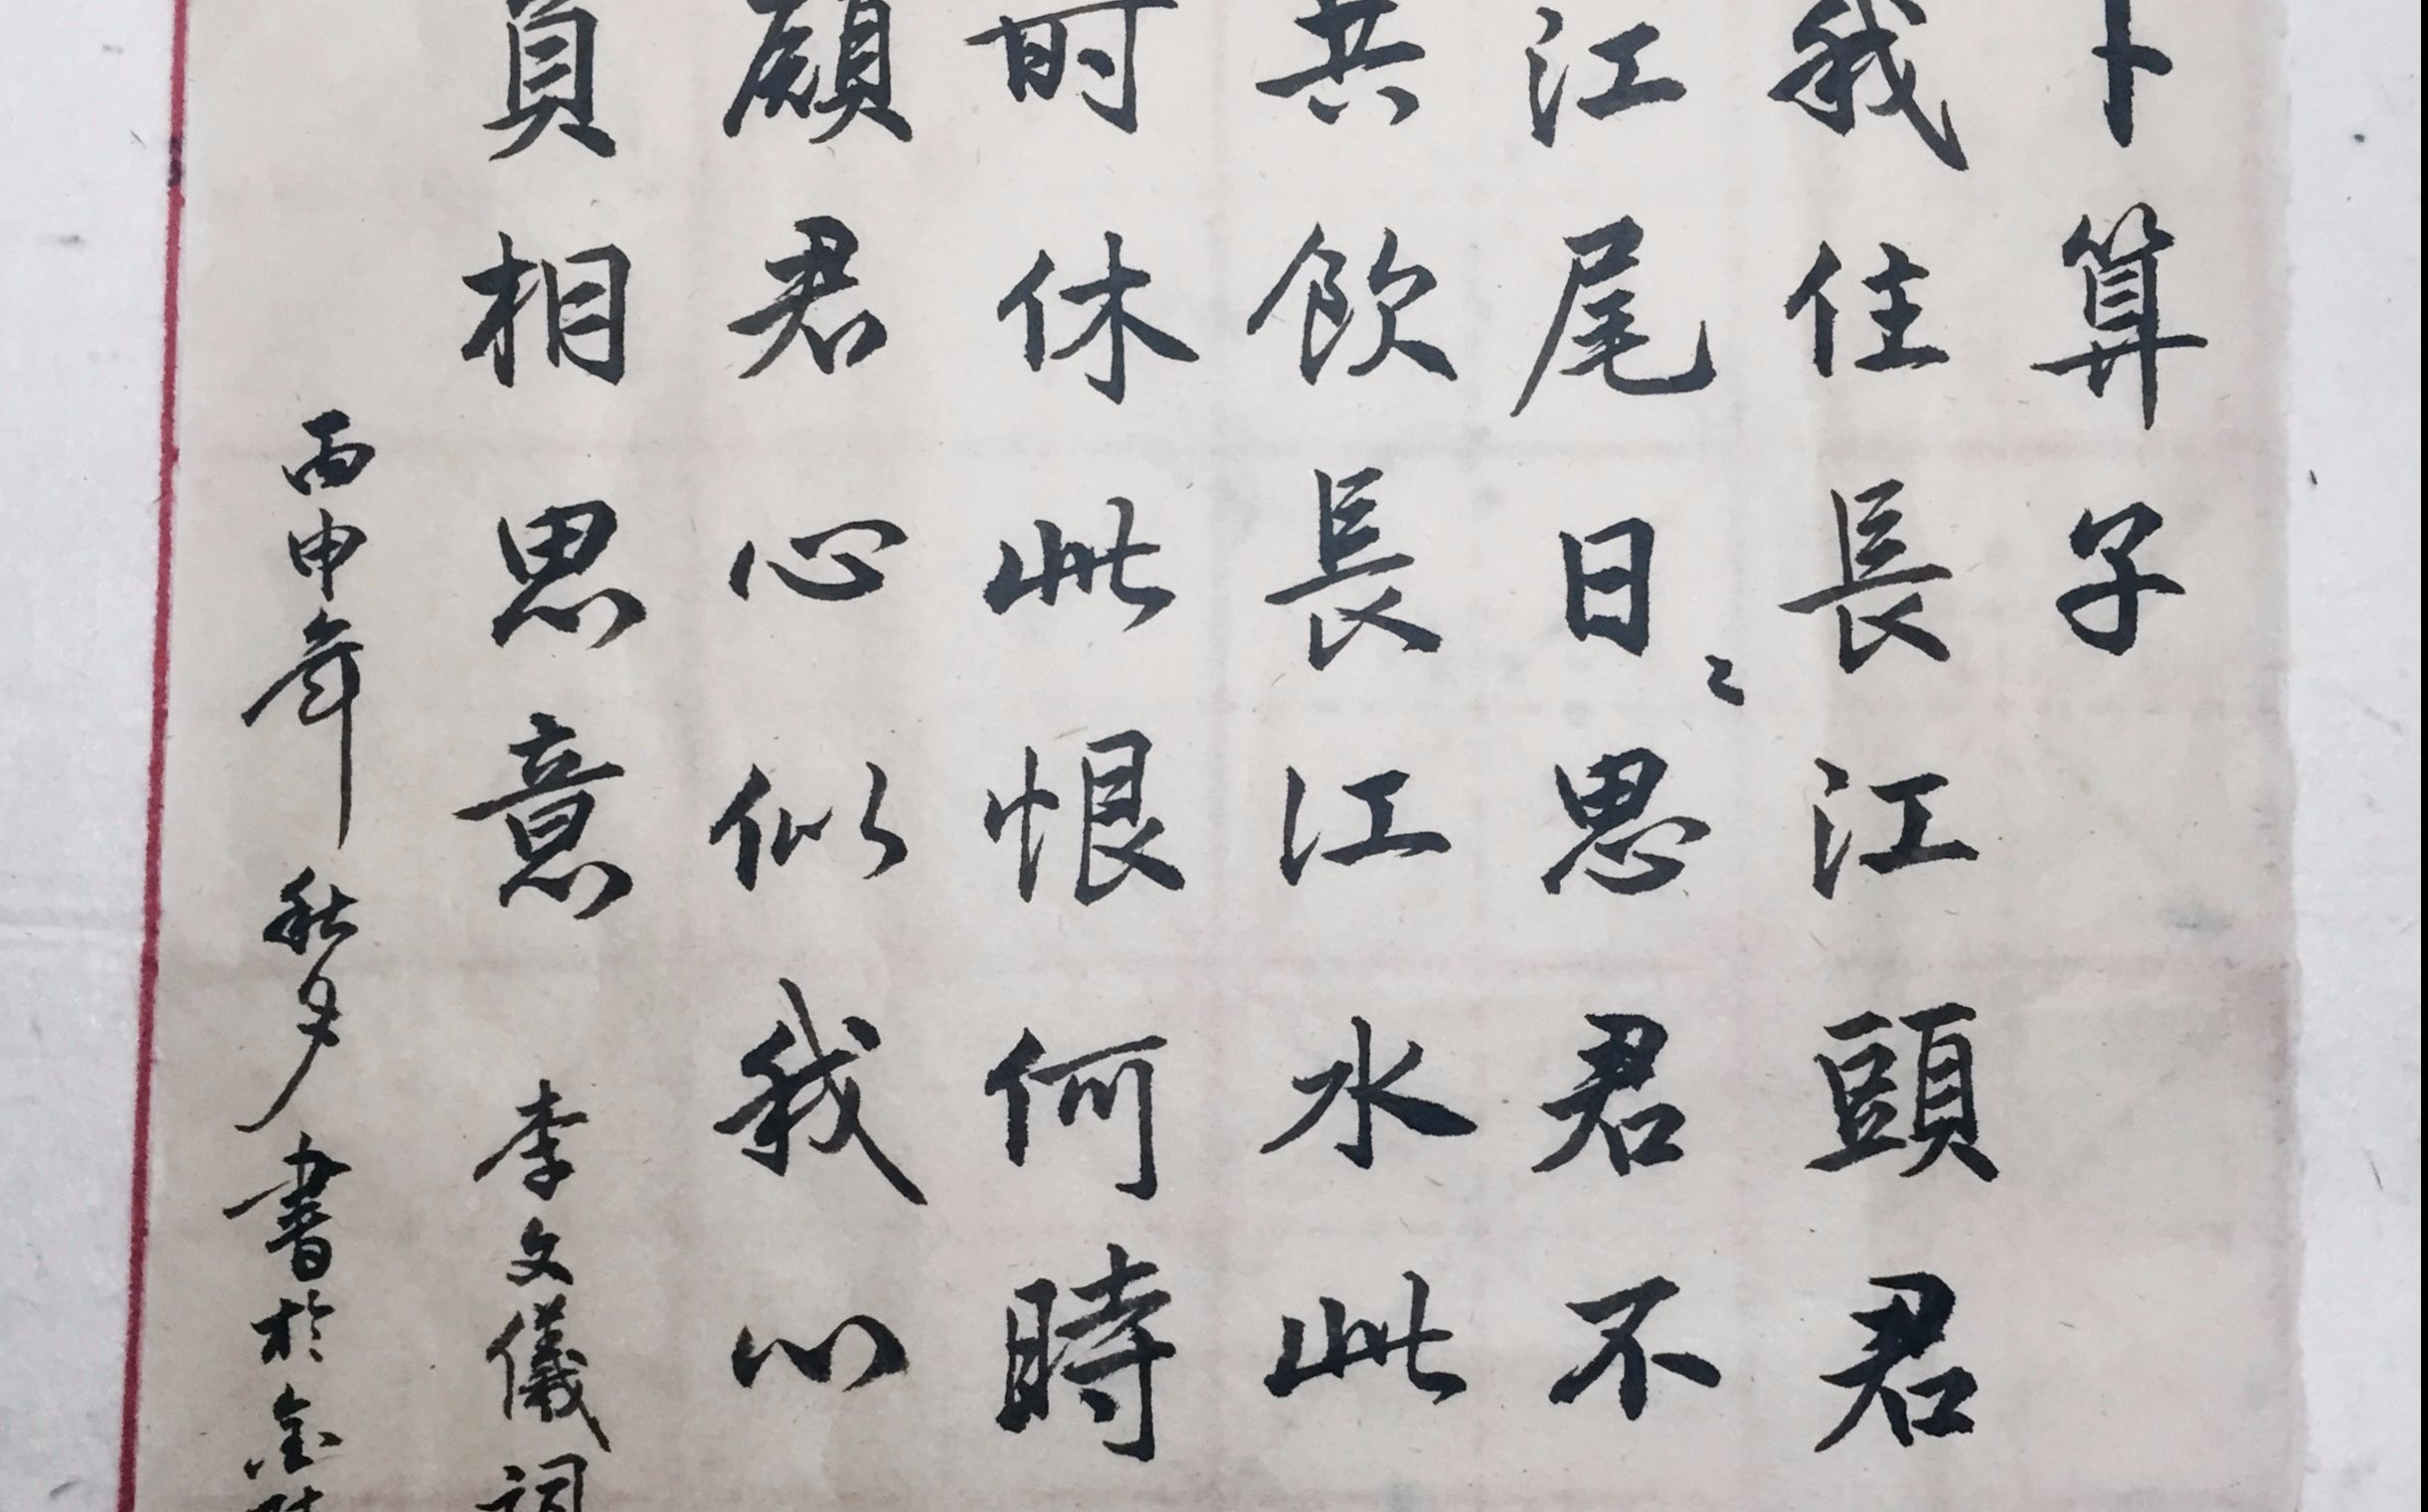 卜算子
我住長江頭君
江尾日〻思君不
共飲長江水此
时休此恨何時
願君心似我心
負相思意 李文儀詞
丙申年秋夕書於金